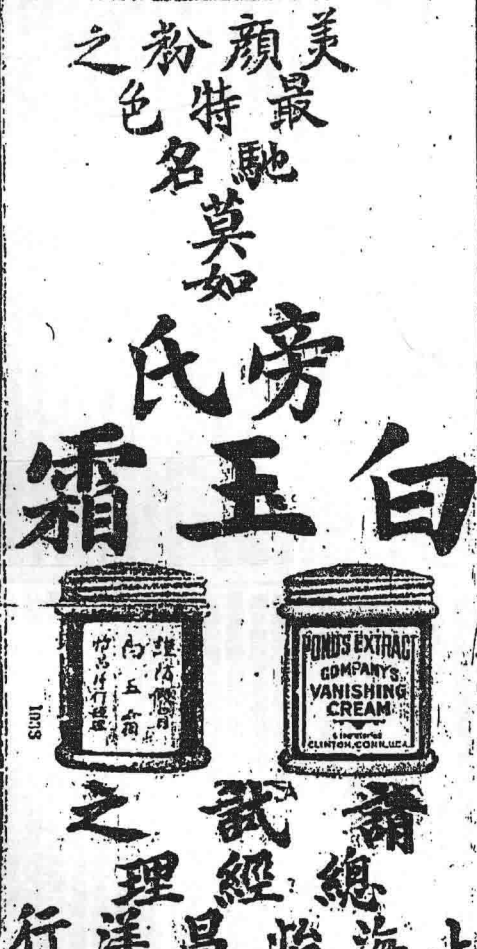 美顏粉之
最特色
馳名
莫如
旁氏
白玉霜
謹防假冒
白玉霜
POND'S EXTRACT
COMPANY'S
VANISHING
CREAM
CLINTON, CONN., U.S.A.
1013
請試之
總經理
上海怡昌洋行